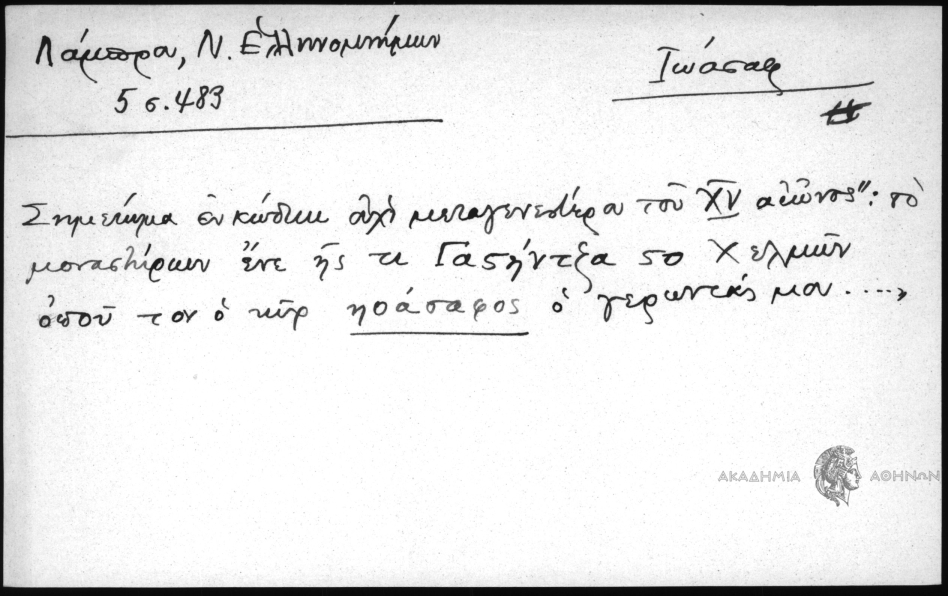 Λάμπρου, Ν. Ἑλληνομνήμων
5 σ. 483
Ἰωάσαφ
Σημείωμα ἐν κώδικι οὐχὶ μεταγενεστέρα τοῦ XV αἰῶνος": τὸ
μοναστήριων ἔνε ἦς τι Γαστήντζα στο Χελμῶν
ὁποῦ τον ὁ κῦρ ηοάσαφος ὁ γέρωντάς μου ....,
ΑΚΑΔΗΜΙΑ ΑΘΗΝΩΝ